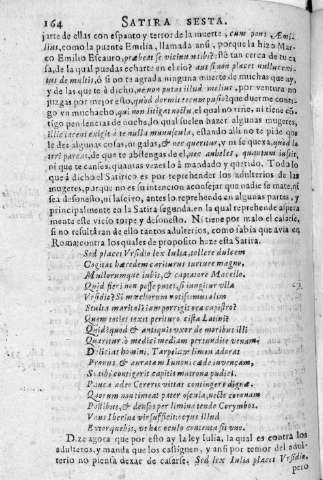 164 SATIRA SESTA.
jarte de ellas con espanto y terror de la muerte, cum pons Æmi-
lius, como la puente Emilia, llamada ansi, porque la hizo Mar-
co Emilio Escauro, præbeat se vicinum tibi? este tan cerca de tu ca-
sa, de la qual puedas echarte en el rio? aut si nullum placet
de multis, ó si no te agrada ninguna muerte de muchas que ay,
y de las que te è dicho, nonne putas illud melius, por ventura no
juzgas por mejor esto, quod dormit tecum pusio? que duerme conti-
go vn muchacho, qui non litigat noctu, el qual no riñe, ni tiene cõ-
tigo pendencias de noche, lo qual suelen hazer algunas mugeres,
illic iacens exigit à te nulla munuscula, estando alli no te pide que
le des algunas cosas, ni galas, & nec queritur, y ni se quexa, quòd la
teri parcas, de que te abstengas del, nec anheles, quantum iussit,
ni que te canses, quanto veze lo à mandado y querido. Todo lo
que à dicho el Satirico es por reprehender los adulterios de las
mugeres, porque no es su intencion aconsejar que nadie se mate, ni
sea desonesto, ni lascivo, antes lo reprehende en algunas partes, y
principalmente en la Satira segunda, en la qual reprehende aspera
mente este vicio torpe y desonesto. Ni tiene por malo el casarse,
si no resultàran de ello tantos adulterios, como sabia que avia en
Roma: contra los quales de proposito haze esta Satira.
Sed placet Vrsidio lex Iulia, tollere dulcem
Cogitat hæredem cariturus turture magno,
Mullorumque iubis, & captatore Macello.
Quid fieri non posse putes, si iungitur vlla
Vrsidio? Si mœchorum notissimus olim
Stulta maritali iam porrigit ora capistro?
Quem toties texit perituri cista Latini?
Quid? quòd & antiquis vxor de moribus illi
Quæritur? ò medici mediam pertundite venam;
Delicias hominis. Tarpeium limen adora
Pronus, & auratam Iunoni cæde iuvencam,
Si tibi contigerit capitis matrona pudici.
Pauca adeo Cereris vittas contingere dignæ.
Quarum non timeat pater oscula, necte coronam
Postibus, & densos per limina tende Corymbos.
Vnus Iberinæ vir sufficit? ocyus illud
Extorquebis, vt hæc oculo contenta sit vno.
Dize agora que por esto ay la ley Iulia, la qual es contra los
adulteros, y manda que los castiguen, y ansi por temor del adul-
terio no piensa dexar de casarse. Sed lex Iulia placet Vrsidio,
pero